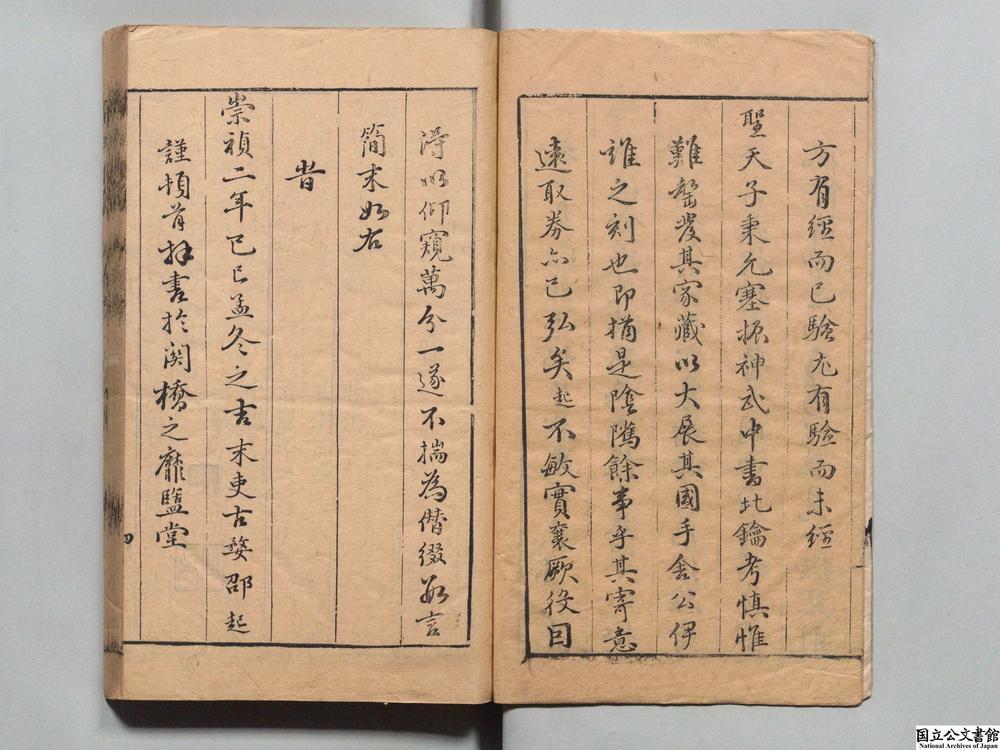 方有經而已驗尤有驗而未經
聖天子秉允塞振神武中書北鑰考慎惟
難罄發其家藏以大展其國手舍公伊
誰之刻也即猶是陰隲餘事乎其寄意
遠取券亦已弘矣起不敏實襄厥役因
淂以仰窺萬分一遂不揣為僭綴數言
簡末如右
旹
崇禎二年己巳孟冬之吉末吏古婺邵起
謹頓首拜書於関橋之靡盬堂
四
国立公文書館
National Archives of Japan